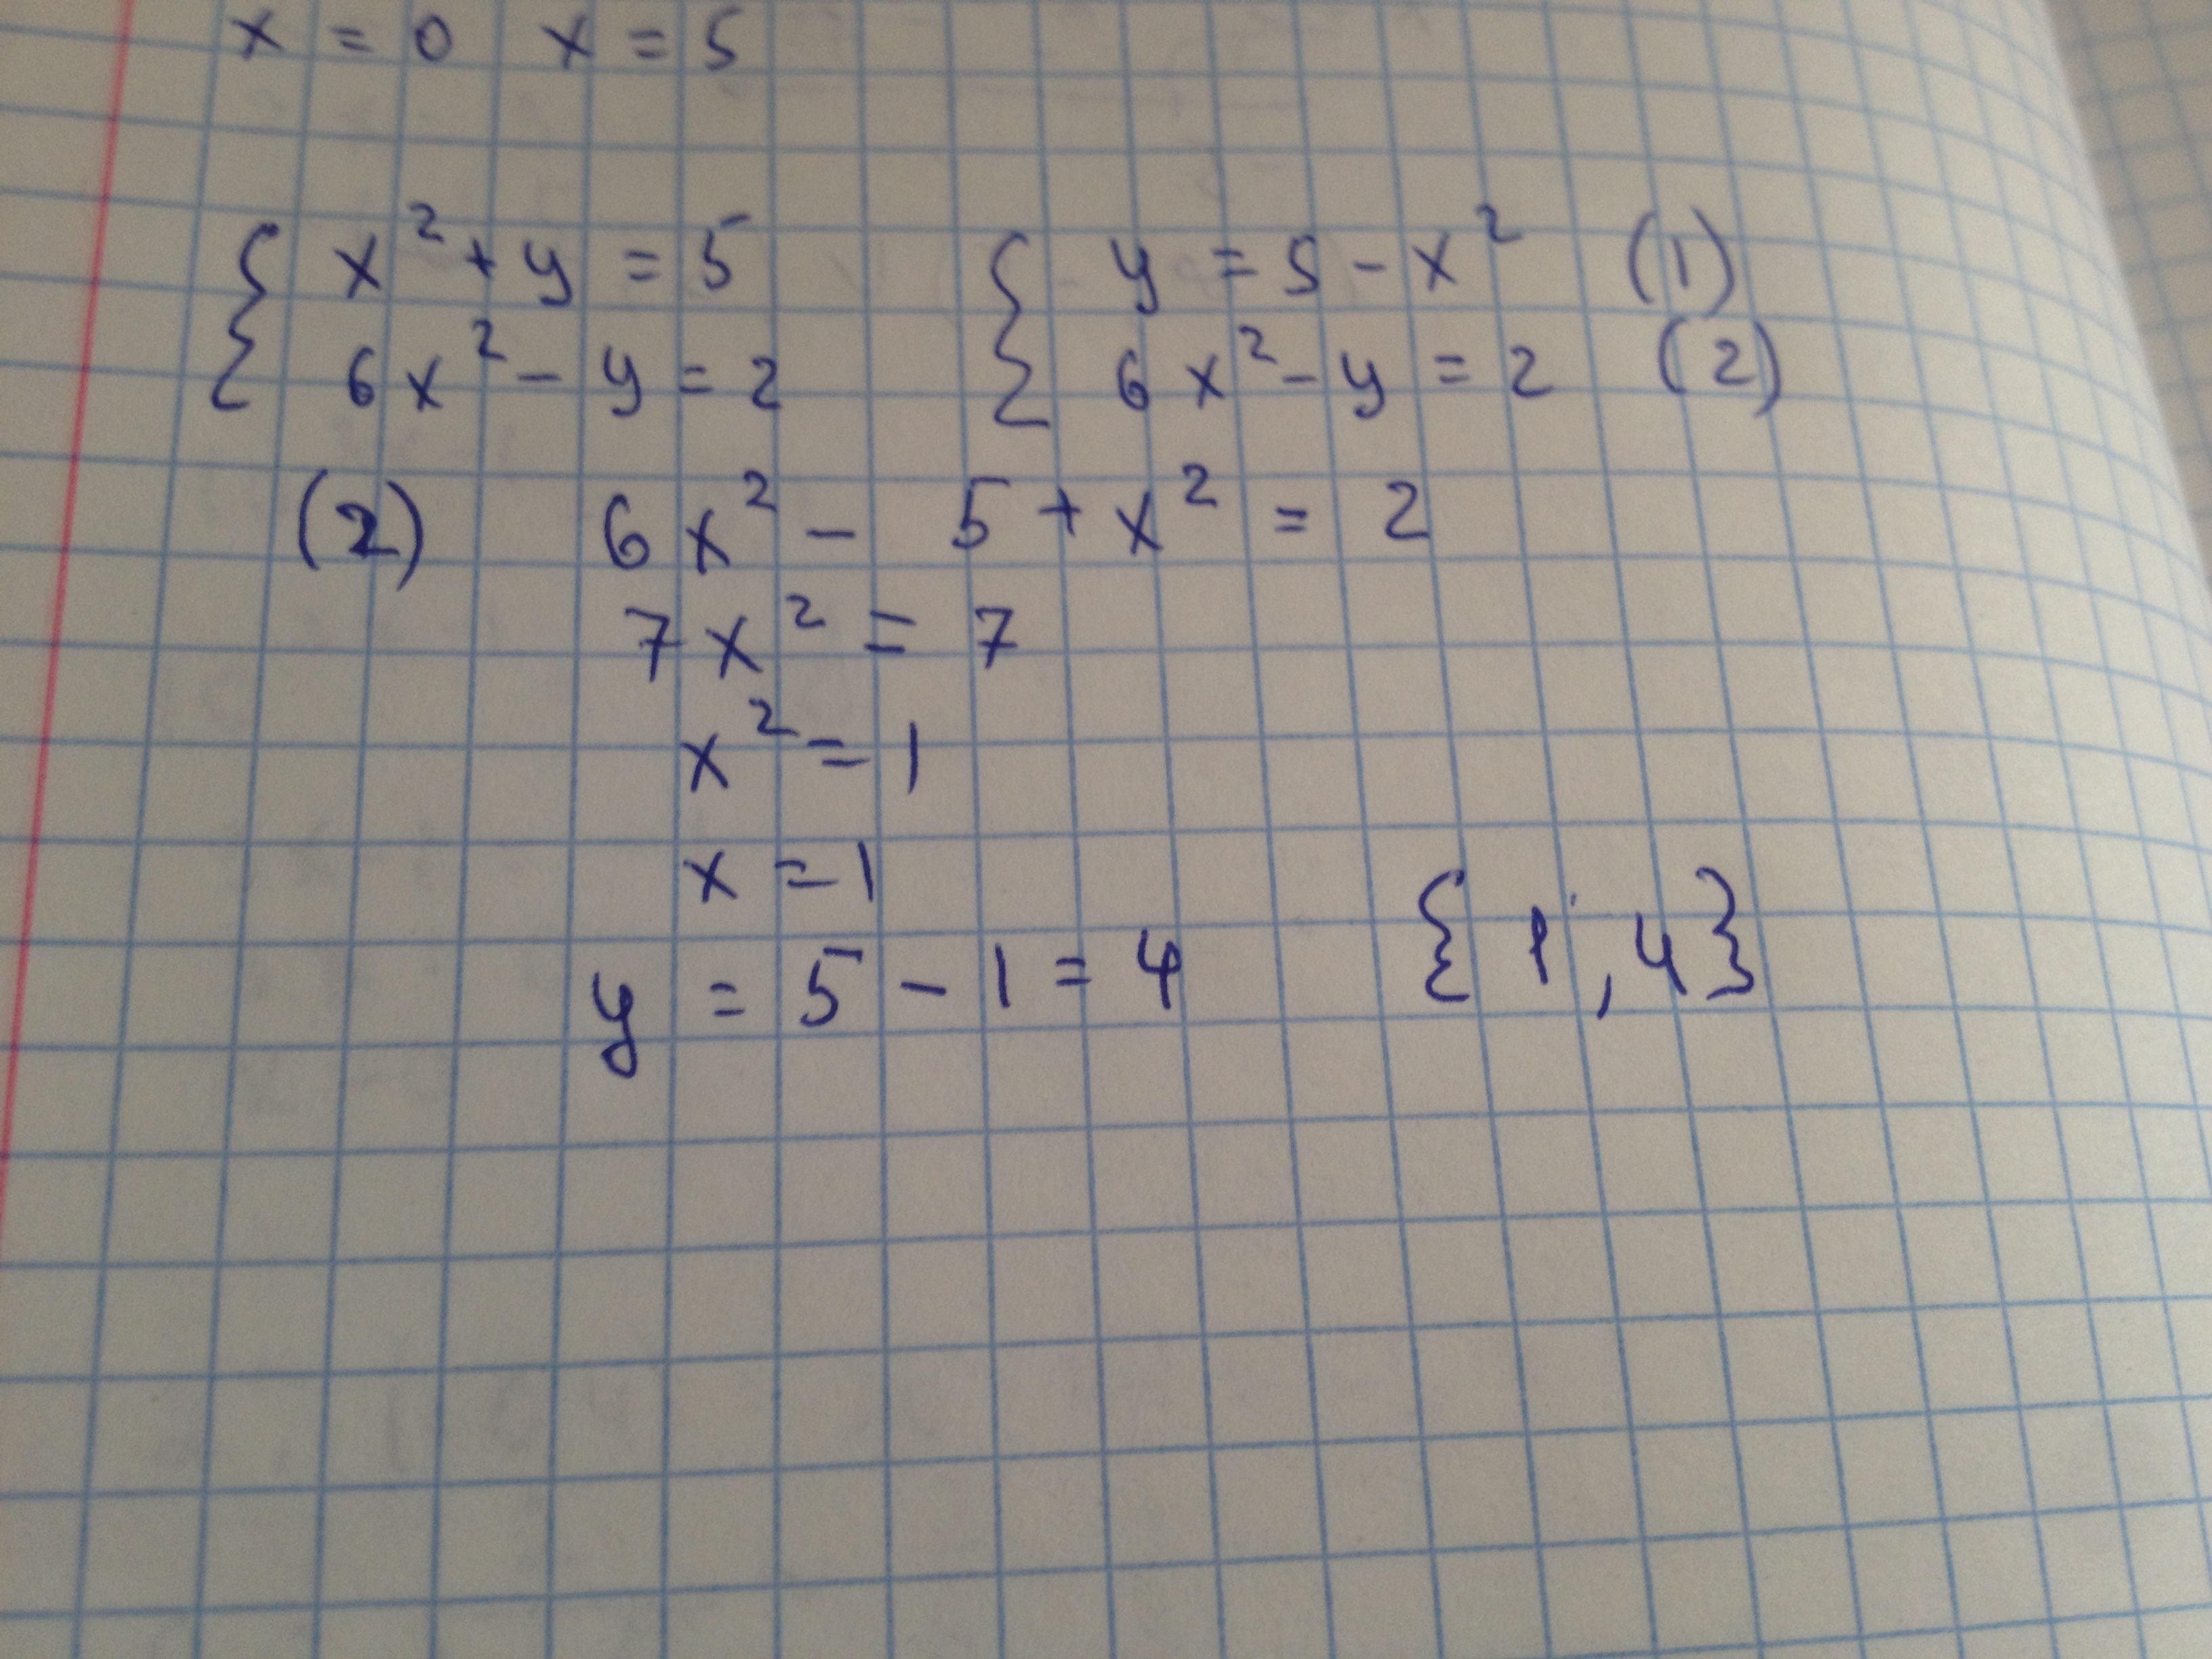 x = 0 x = 5
{ x² + y = 5 { y = 5 - x² (1)
6x² - y = 2 6x² - y = 2 (2)
(2) 6x² - 5 + x² = 2
7x² = 7
x² = 1
x = 1
y = 5 - 1 = 4 {1, 4}